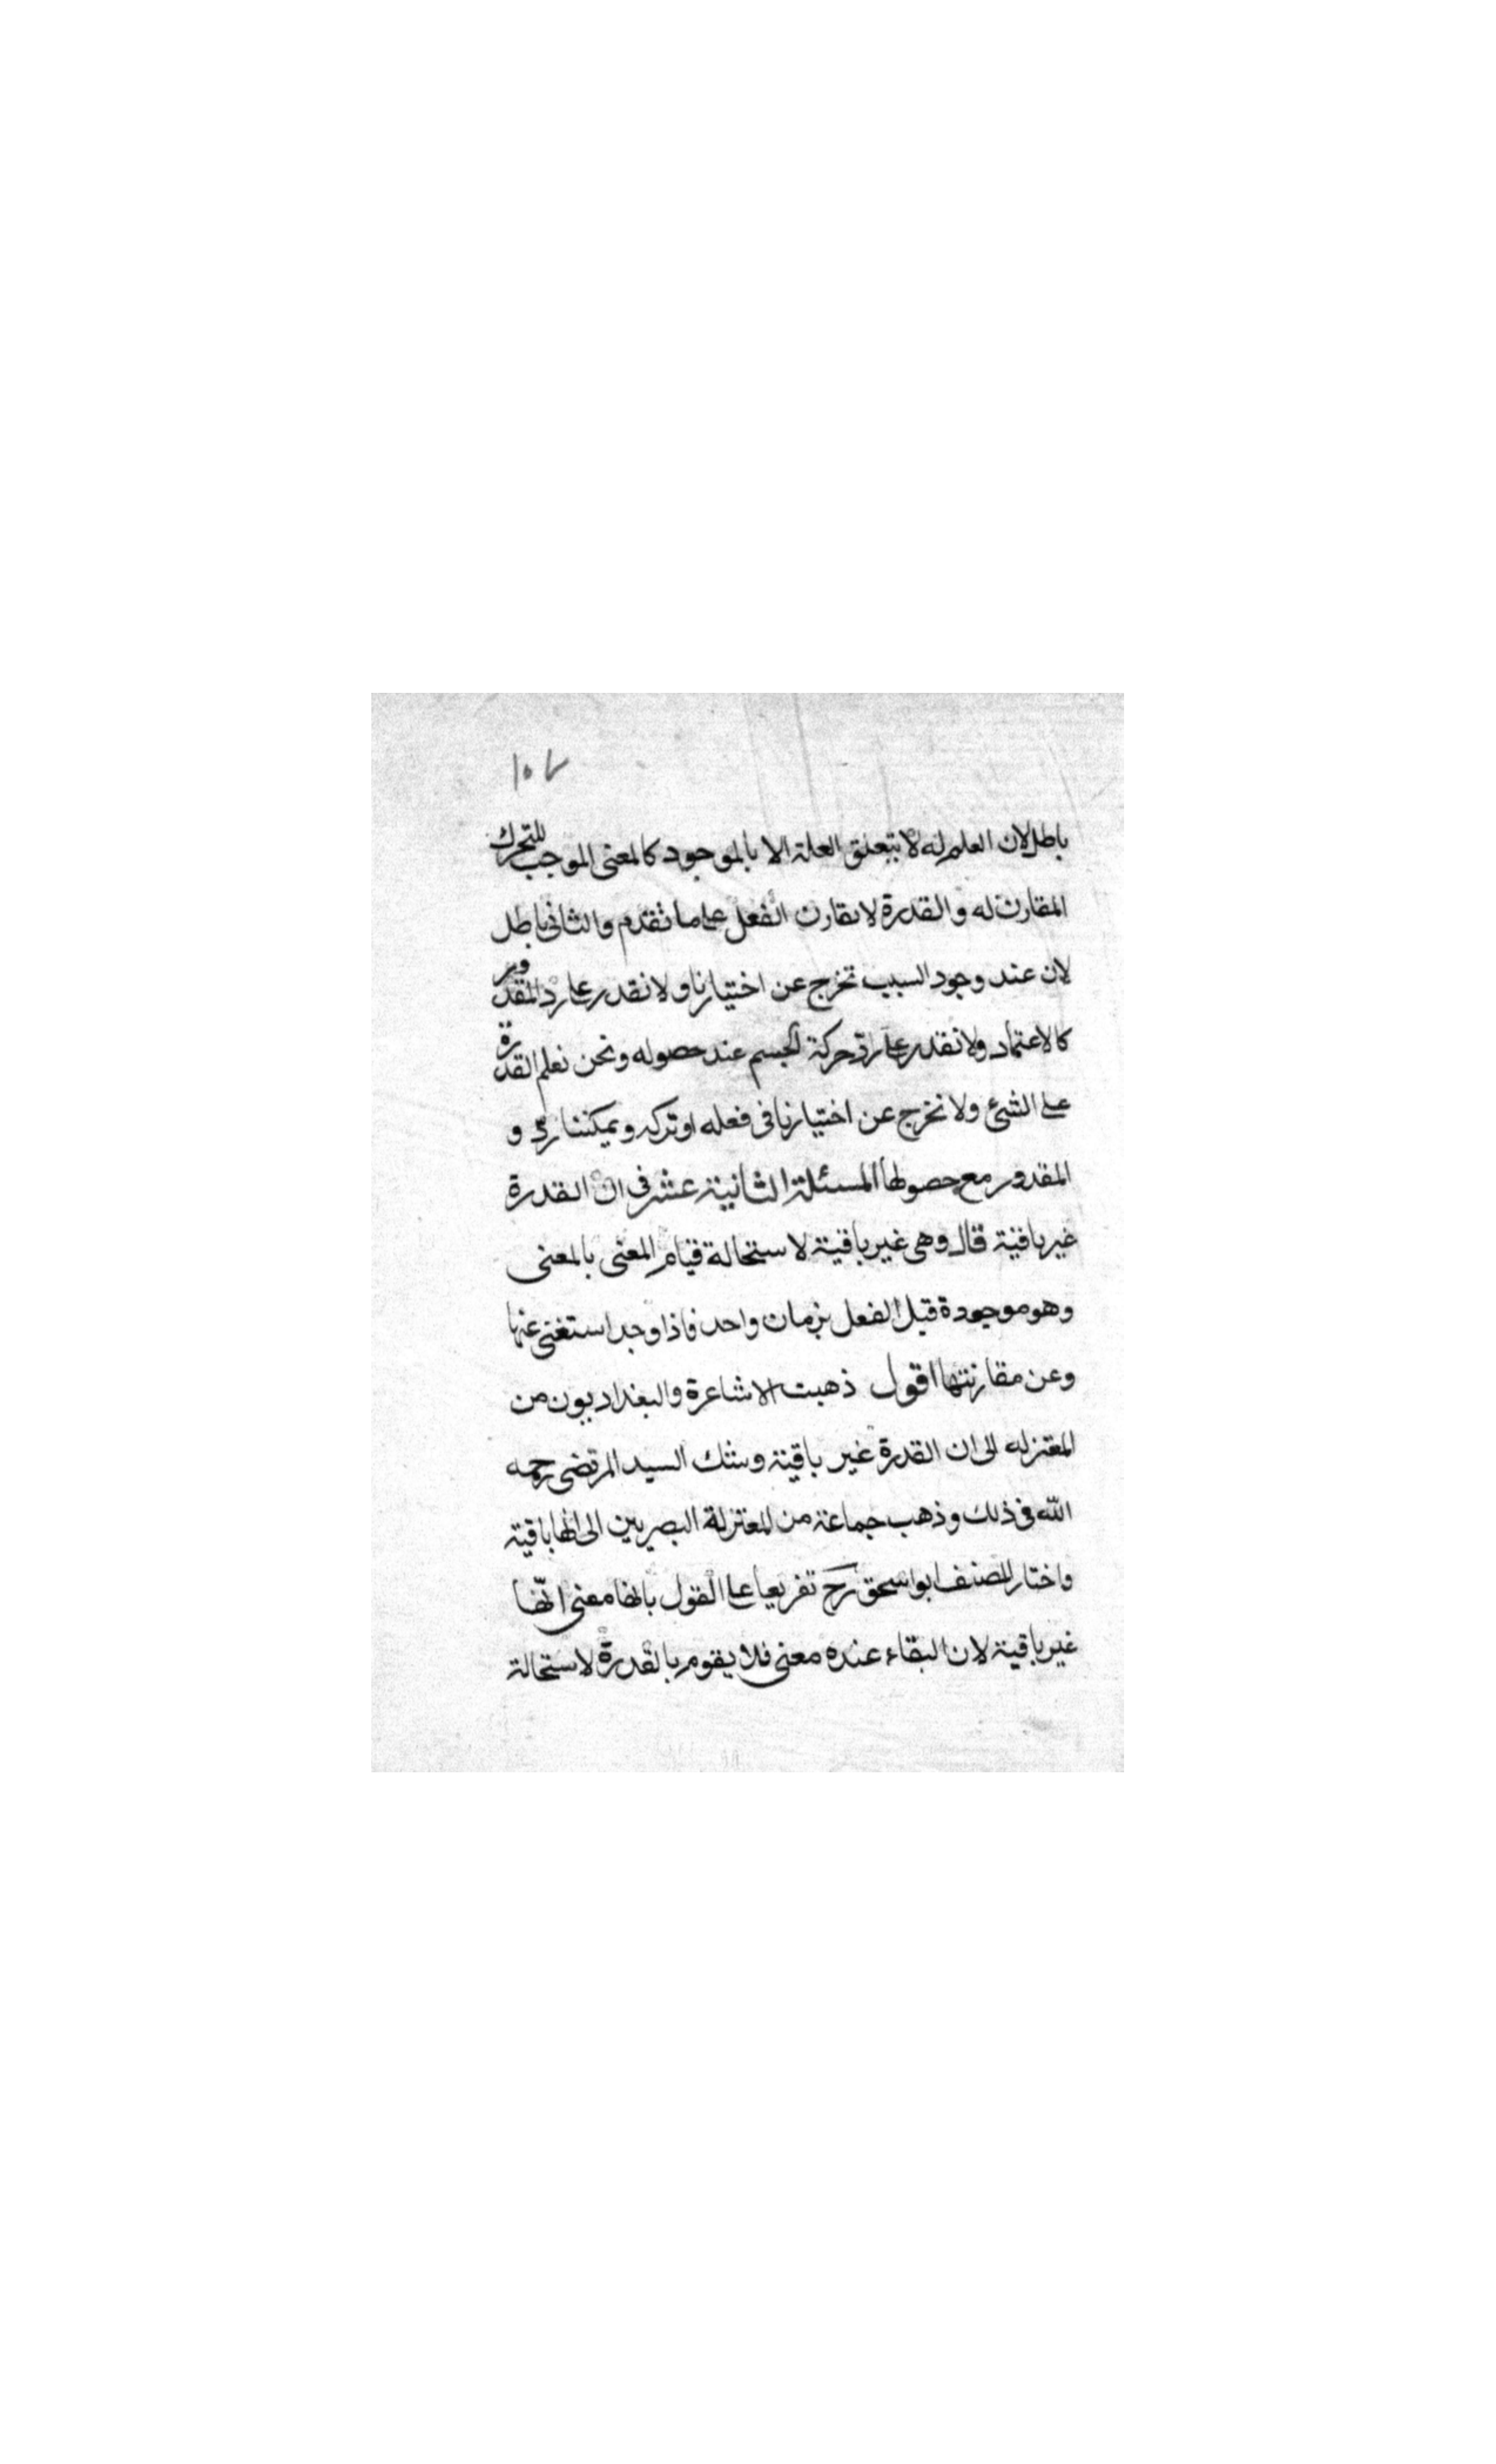 ١٥٧
باطل لان العلم له لا تتعلق العلة الا بالموجود كالمعنى الموجب للتحرك
المقارن له والقدرة لا تقارن الفعل على ما تقدم والثانى باطل
لان عند وجود السبب تخرج عن اختيارنا ولا نقدر على رد المقدور
كالاعتماد ولا نقدر على رد حركة الجسم عند حصوله ونحن نعلم القدرة
على الشئ ولا نخرج عن اختيارنا فى فعله او تركه ويمكننا رد و
المقدور مع حصولها المسئلة الثانية عشر فى ان القدرة
غير باقية قال وهى غير باقية لاستحالة قيام المعنى بالمعنى
وهو موجودة قبل الفعل بزمان واحد فاذا وجد استغنى عنها
وعن مقارنتها اقول ذهبت الاشاعرة والبغداديون من
المعتزله الى ان القدرة غير باقية وشك السيد المرتضى رحمه
الله فى ذلك وذهب جماعة من المعتزلة البصريين الى انها باقية
واختار المصنف ابو اسحق رح تفريعا على القول بانها معنى انّها
غير باقية لان البقاء عنده معنى فلا يقوم بالقدرة لاستحالة